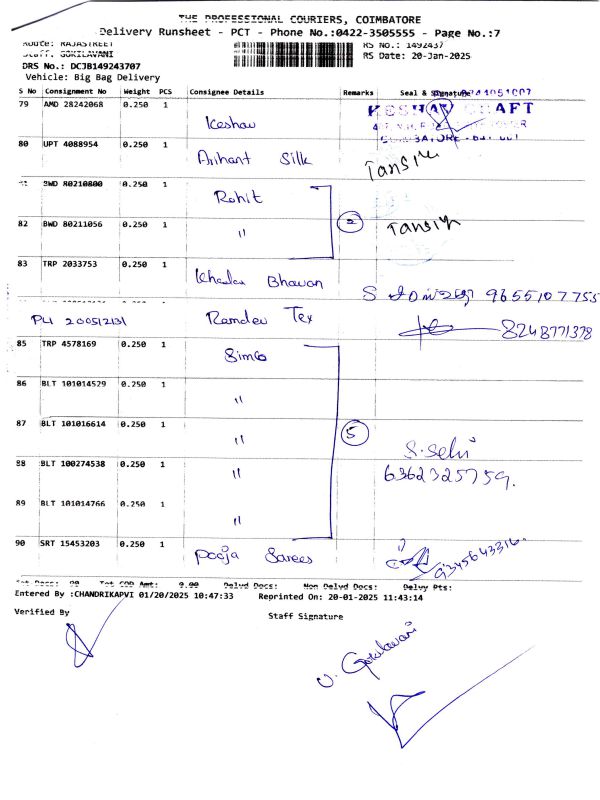 THE PROFESSIONAL COURIERS, COIMBATORE
Delivery Runsheet - PCT - Phone No.:0422-3505555 - Page No.:7
Route: RAJASTREET RS No.: 1492437
Staff: GOKILAVANI RS Date: 20-Jan-2025
DRS No.: DCJB149243707
Vehicle: Big Bag Delivery
S No Consignment No Weight PCS Consignee Details Remarks Seal & Signature
79 AMD 28242068 0.250 1 Keshav
80 UPT 4088954 0.250 1 Arihant Silk Tansir
BWD 80210800 0.250 1 Rohit
82 BWD 80211056 0.250 1 " 2 Tansir
83 TRP 2033753 0.250 1 Bhavan 9655107755
PLI 200512131 Ramdev Tex 8248771378
85 TRP 4578169 0.250 1 Simco
86 BLT 101014529 0.250 1 "
87 BLT 101016614 0.250 1 " 5 S. Selvi
88 BLT 100274538 0.250 1 " 6362325759.
89 BLT 101014766 0.250 1 "
90 SRT 15453203 0.250 1 Pooja Sarees 9345643316.
Tot Docs: 90 Tot COD Amt: 0.00 Delvd Docs: Non Delvd Docs: Delvy Pts:
Entered By :CHANDRIKAPVI 01/20/2025 10:47:33 Reprinted On: 20-01-2025 11:43:14
Verified By Staff Signature
V. Gokilavani